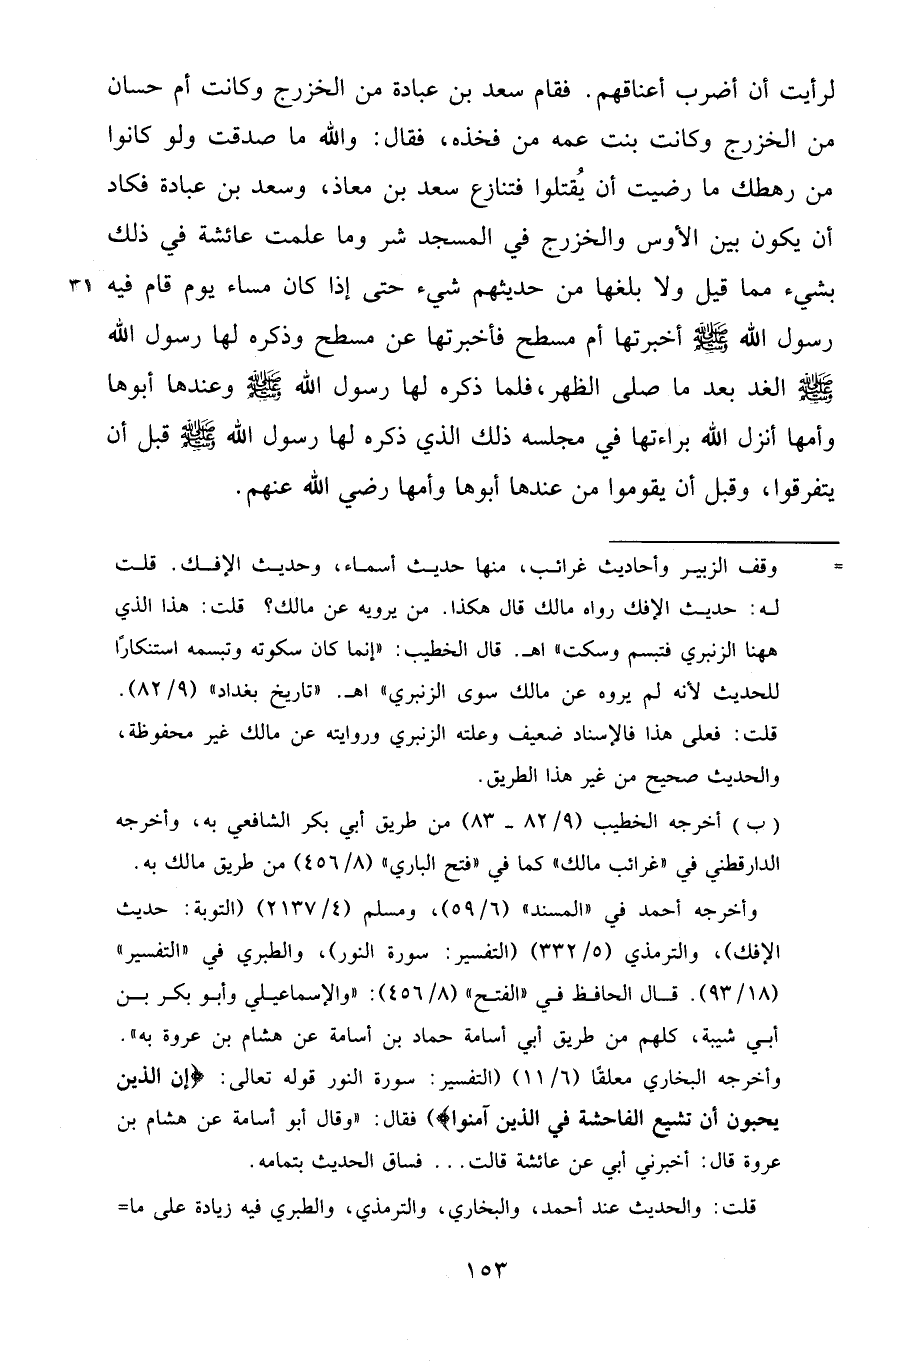 لرأيت أن أضرب أعناقهم. فقام سعد بن عبادة من الخزرج وكانت أم حسان
من الخزرج وكانت بنت عمه من فخذه، فقال: والله ما صدقت ولو كانوا
من رهطك ما رضيت أن يُقتلوا فتنازع سعد بن معاذ، وسعد بن عبادة فكاد
أن يكون بين الأوس والخزرج في المسجد شر وما علمت عائشة في ذلك
بشيء مما قيل ولا بلغها من حديثهم شيء حتى إذا كان مساء يوم قام فيه ٣٦
رسول الله ﷺ أخبرتها أم مسطح فأخبرتها عن مسطح وذكره لها رسول الله
ﷺ الغد بعد ما صلى الظهر، فلما ذكره لها رسول الله ﷺ وعندها أبوها
وأمها أنزل الله براءتها في مجلسه ذلك الذي ذكره لها رسول الله ﷺ قبل أن
يتفرقوا، وقبل أن يقوموا من عندها أبوها وأمها رضي الله عنهم.
= وقف الزبير وأحاديث غرائب، منها حديث أسماء، وحديث الإفك. قلت
له: حديث الإفك رواه مالك قال هكذا. من يرويه عن مالك؟ قلت: هذا الذي
ههنا الزنبري فتبسم وسكت» اهـ. قال الخطيب: «إنما كان سكوته وتبسمه استنكارًا
للحديث لأنه لم يروه عن مالك سوى الزنبري» اهـ. «تاريخ بغداد» (٨٢/٩).
قلت: فعلى هذا فالإسناد ضعيف وعلته الزنبري وروايته عن مالك غير محفوظة،
والحديث صحيح من غير هذا الطريق.
(ب) أخرجه الخطيب (٨٢/٩ - ٨٣) من طريق أبي بكر الشافعي به، وأخرجه
الدارقطني في «غرائب مالك» كما في «فتح الباري» (٤٥٦/٨) من طريق مالك به.
وأخرجه أحمد في «المسند» (٥٩/٦)، ومسلم (٢١٣٧/٤) (التوبة: حديث
الإفك)، والترمذي (٣٣٢/٥) (التفسير: سورة النور)، والطبري في «التفسير»
(٩٣/١٨). قال الحافظ في «الفتح» (٤٥٦/٨): «والإسماعيلي وأبو بكر بن
أبي شيبة، كلهم من طريق أبي أسامة حماد بن أسامة عن هشام بن عروة به».
وأخرجه البخاري معلقًا (١١/٦) (التفسير: سورة النور قوله تعالى: ﴿إن الذين
يحبون أن تشيع الفاحشة في الذين آمنوا﴾) فقال: «وقال أبو أسامة عن هشام بن
عروة قال: أخبرني أبي عن عائشة قالت... فساق الحديث بتمامه.
قلت: والحديث عند أحمد، والبخاري، والترمذي، والطبري فيه زيادة على ما=
١٥٣